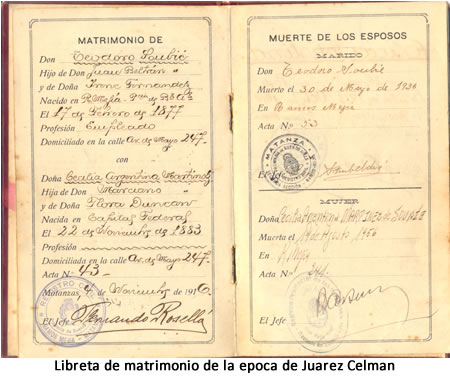 MATRIMONIO DE
Don Teodoro Soubié
Hijo de Don Juan Beltrán "
y de Doña Irene Fernandez
Nacido en R. Mejía Pro. de Bs As
El 17 de Enero de 1877
Profesión Empleado
Domiciliado en la calle Av. de Mayo 247.
con
Doña Cecilia Argentina Martinez
Hija de Don Marciano "
y de Doña Flora Duncan
Nacida en Capital Federal
El 22 de Noviembre de 1883
Profesión
Domiciliada en la calle Av. de Mayo 247.
Acta N.o 43
Matanzas, 4 de Noviembre de 1916.
El Jefe: Fernando Rosellá
REGISTRO CIVIL
MUERTE DE LOS ESPOSOS
MARIDO
Don Teodoro Soubié
Muerto el 30 de Mayo de 1930
En Ramos Mejia
Acta N.o 53
MATANZA
El Jefe
MUJER
Doña Cecilia Argentina MARTINEZ de SOUBIE
Muerta el 19 de Agosto 1950
En R. Mejia
Acta N.o
El Jefe
Libreta de matrimonio de la epoca de Juarez Celman